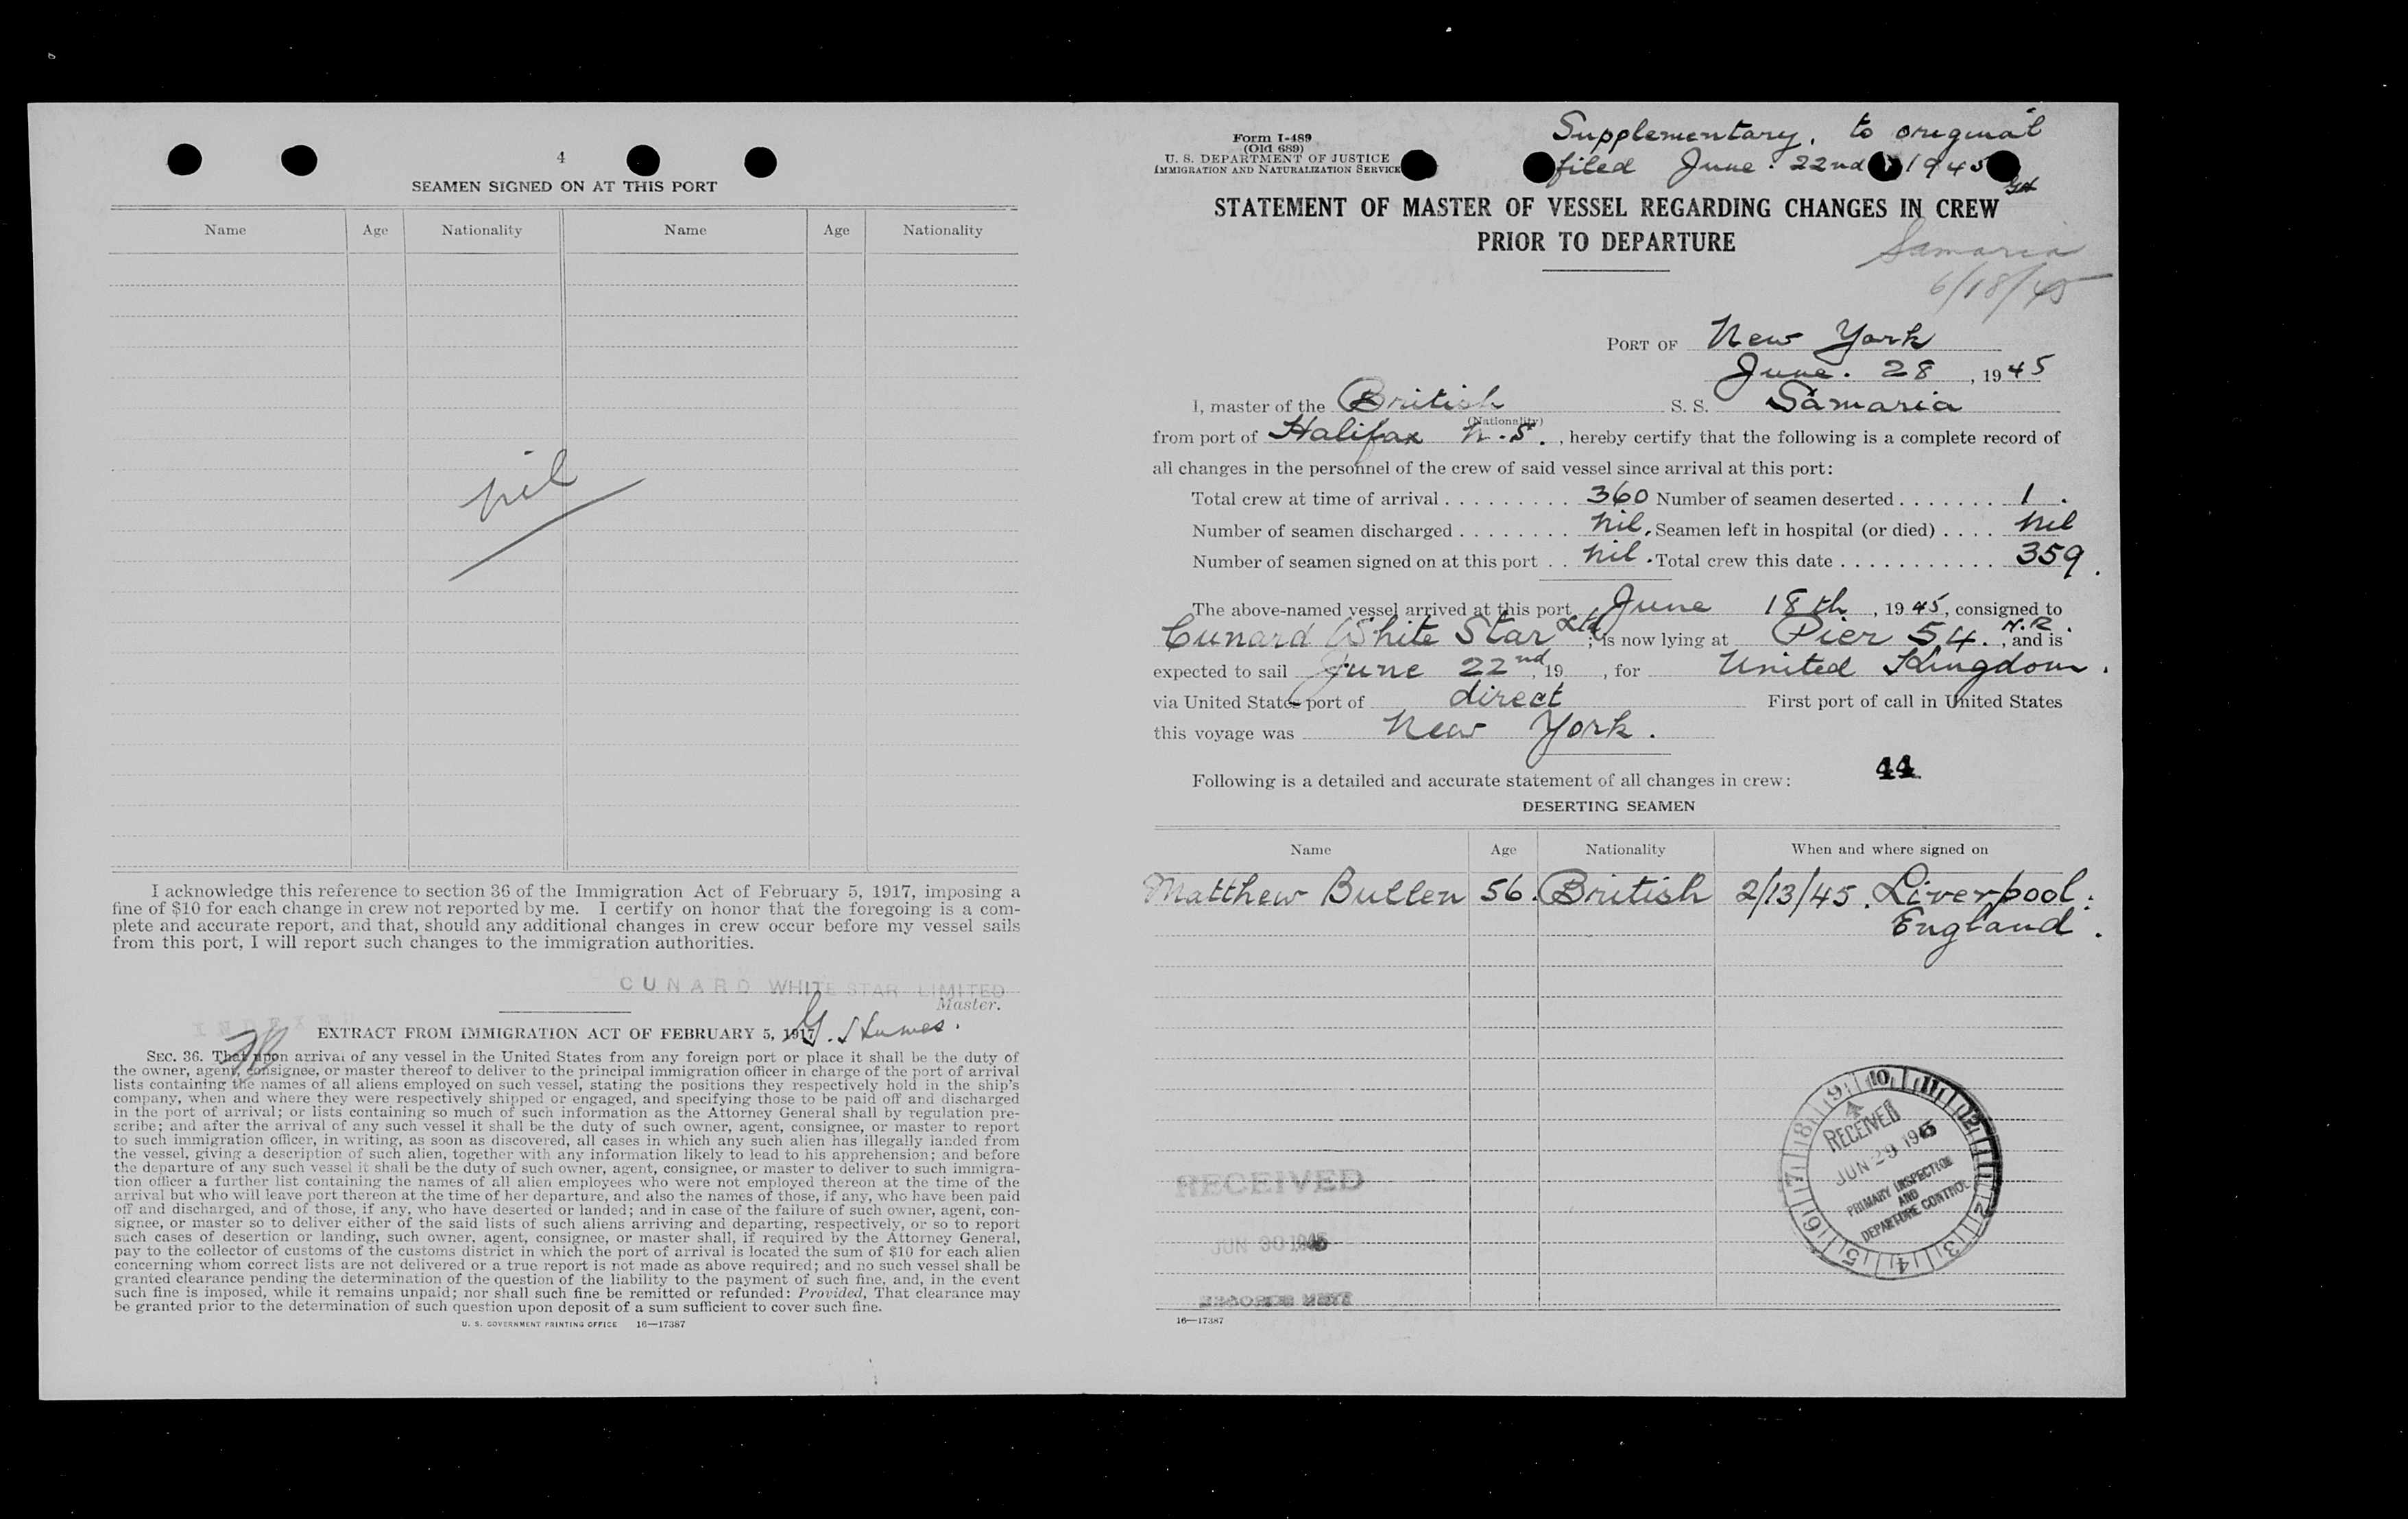 4
SEAMEN SIGNED ON AT THIS PORT
Name Age Nationality Name Age Nationality
nil
I acknowledge this reference to section 36 of the Immigration Act of February 5, 1917, imposing a
fine of $10 for each change in crew not reported by me. I certify on honor that the foregoing is a com-
plete and accurate report, and that, should any additional changes in crew occur before my vessel sails
from this port, I will report such changes to the immigration authorities.
CUNARD WHITE STAR LIMITED
Master.
INDEXED
EXTRACT FROM IMMIGRATION ACT OF FEBRUARY 5, 1917
SEC. 36. That upon arrival of any vessel in the United States from any foreign port or place it shall be the duty of
the owner, agent, consignee, or master thereof to deliver to the principal immigration officer in charge of the port of arrival
lists containing the names of all aliens employed on such vessel, stating the positions they respectively hold in the ship's
company, when and where they were respectively shipped or engaged, and specifying those to be paid off and discharged
in the port of arrival; or lists containing so much of such information as the Attorney General shall by regulation pre-
scribe; and after the arrival of any such vessel it shall be the duty of such owner, agent, consignee, or master to report
to such immigration officer, in writing, as soon as discovered, all cases in which any such alien has illegally landed from
the vessel, giving a description of such alien, together with any information likely to lead to his apprehension; and before
the departure of any such vessel it shall be the duty of such owner, agent, consignee, or master to deliver to such immigra-
tion officer a further list containing the names of all alien employees who were not employed thereon at the time of the
arrival but who will leave port thereon at the time of her departure, and also the names of those, if any, who have been paid
off and discharged, and of those, if any, who have deserted or landed; and in case of the failure of such owner, agent, con-
signee, or master so to deliver either of the said lists of such aliens arriving and departing, respectively, or so to report
such cases of desertion or landing, such owner, agent, consignee, or master shall, if required by the Attorney General,
pay to the collector of customs of the customs district in which the port of arrival is located the sum of $10 for each alien
concerning whom correct lists are not delivered or a true report is not made as above required; and no such vessel shall be
granted clearance pending the determination of the question of the liability to the payment of such fine, and, in the event
such fine is imposed, while it remains unpaid; nor shall such fine be remitted or refunded: Provided, That clearance may
be granted prior to the determination of such question upon deposit of a sum sufficient to cover such fine.
U. S. GOVERNMENT PRINTING OFFICE 16—17387
Form I-489
(Old 689)
U. S. DEPARTMENT OF JUSTICE
IMMIGRATION AND NATURALIZATION SERVICE
Supplementary, to original
filed June. 22nd 1945
STATEMENT OF MASTER OF VESSEL REGARDING CHANGES IN CREW
PRIOR TO DEPARTURE
Samaria
6/18/45
PORT OF New York
June. 28, 1945
I, master of the British S. S. Samaria
(Nationality)
from port of Halifax N.S., hereby certify that the following is a complete record of
all changes in the personnel of the crew of said vessel since arrival at this port:
Total crew at time of arrival . . . . . . . . . 360 Number of seamen deserted . . . . . . . 1.
Number of seamen discharged . . . . . . . . nil. Seamen left in hospital (or died) . . . . nil
Number of seamen signed on at this port . . nil. Total crew this date . . . . . . . . . . . . 359.
The above-named vessel arrived at this port June 18th, 1945, consigned to
Cunard White Star Ltd; is now lying at Pier 54. N.R., and is
expected to sail June 22nd, 19 , for United Kingdom.
via United States port of direct First port of call in United States
this voyage was New York.
Following is a detailed and accurate statement of all changes in crew:
44
DESERTING SEAMEN
Name Age Nationality When and where signed on
Matthew Bullen 56. British 2/13/45. Liverpool:
England.
9 10 11 12 1 2 3 4 5 6 7 8
RECEIVED
JUN 29 1945
PRIMARY INSPECTION
AND
DEPARTURE CONTROL
RECEIVED
JUN 30 1945
16—17387